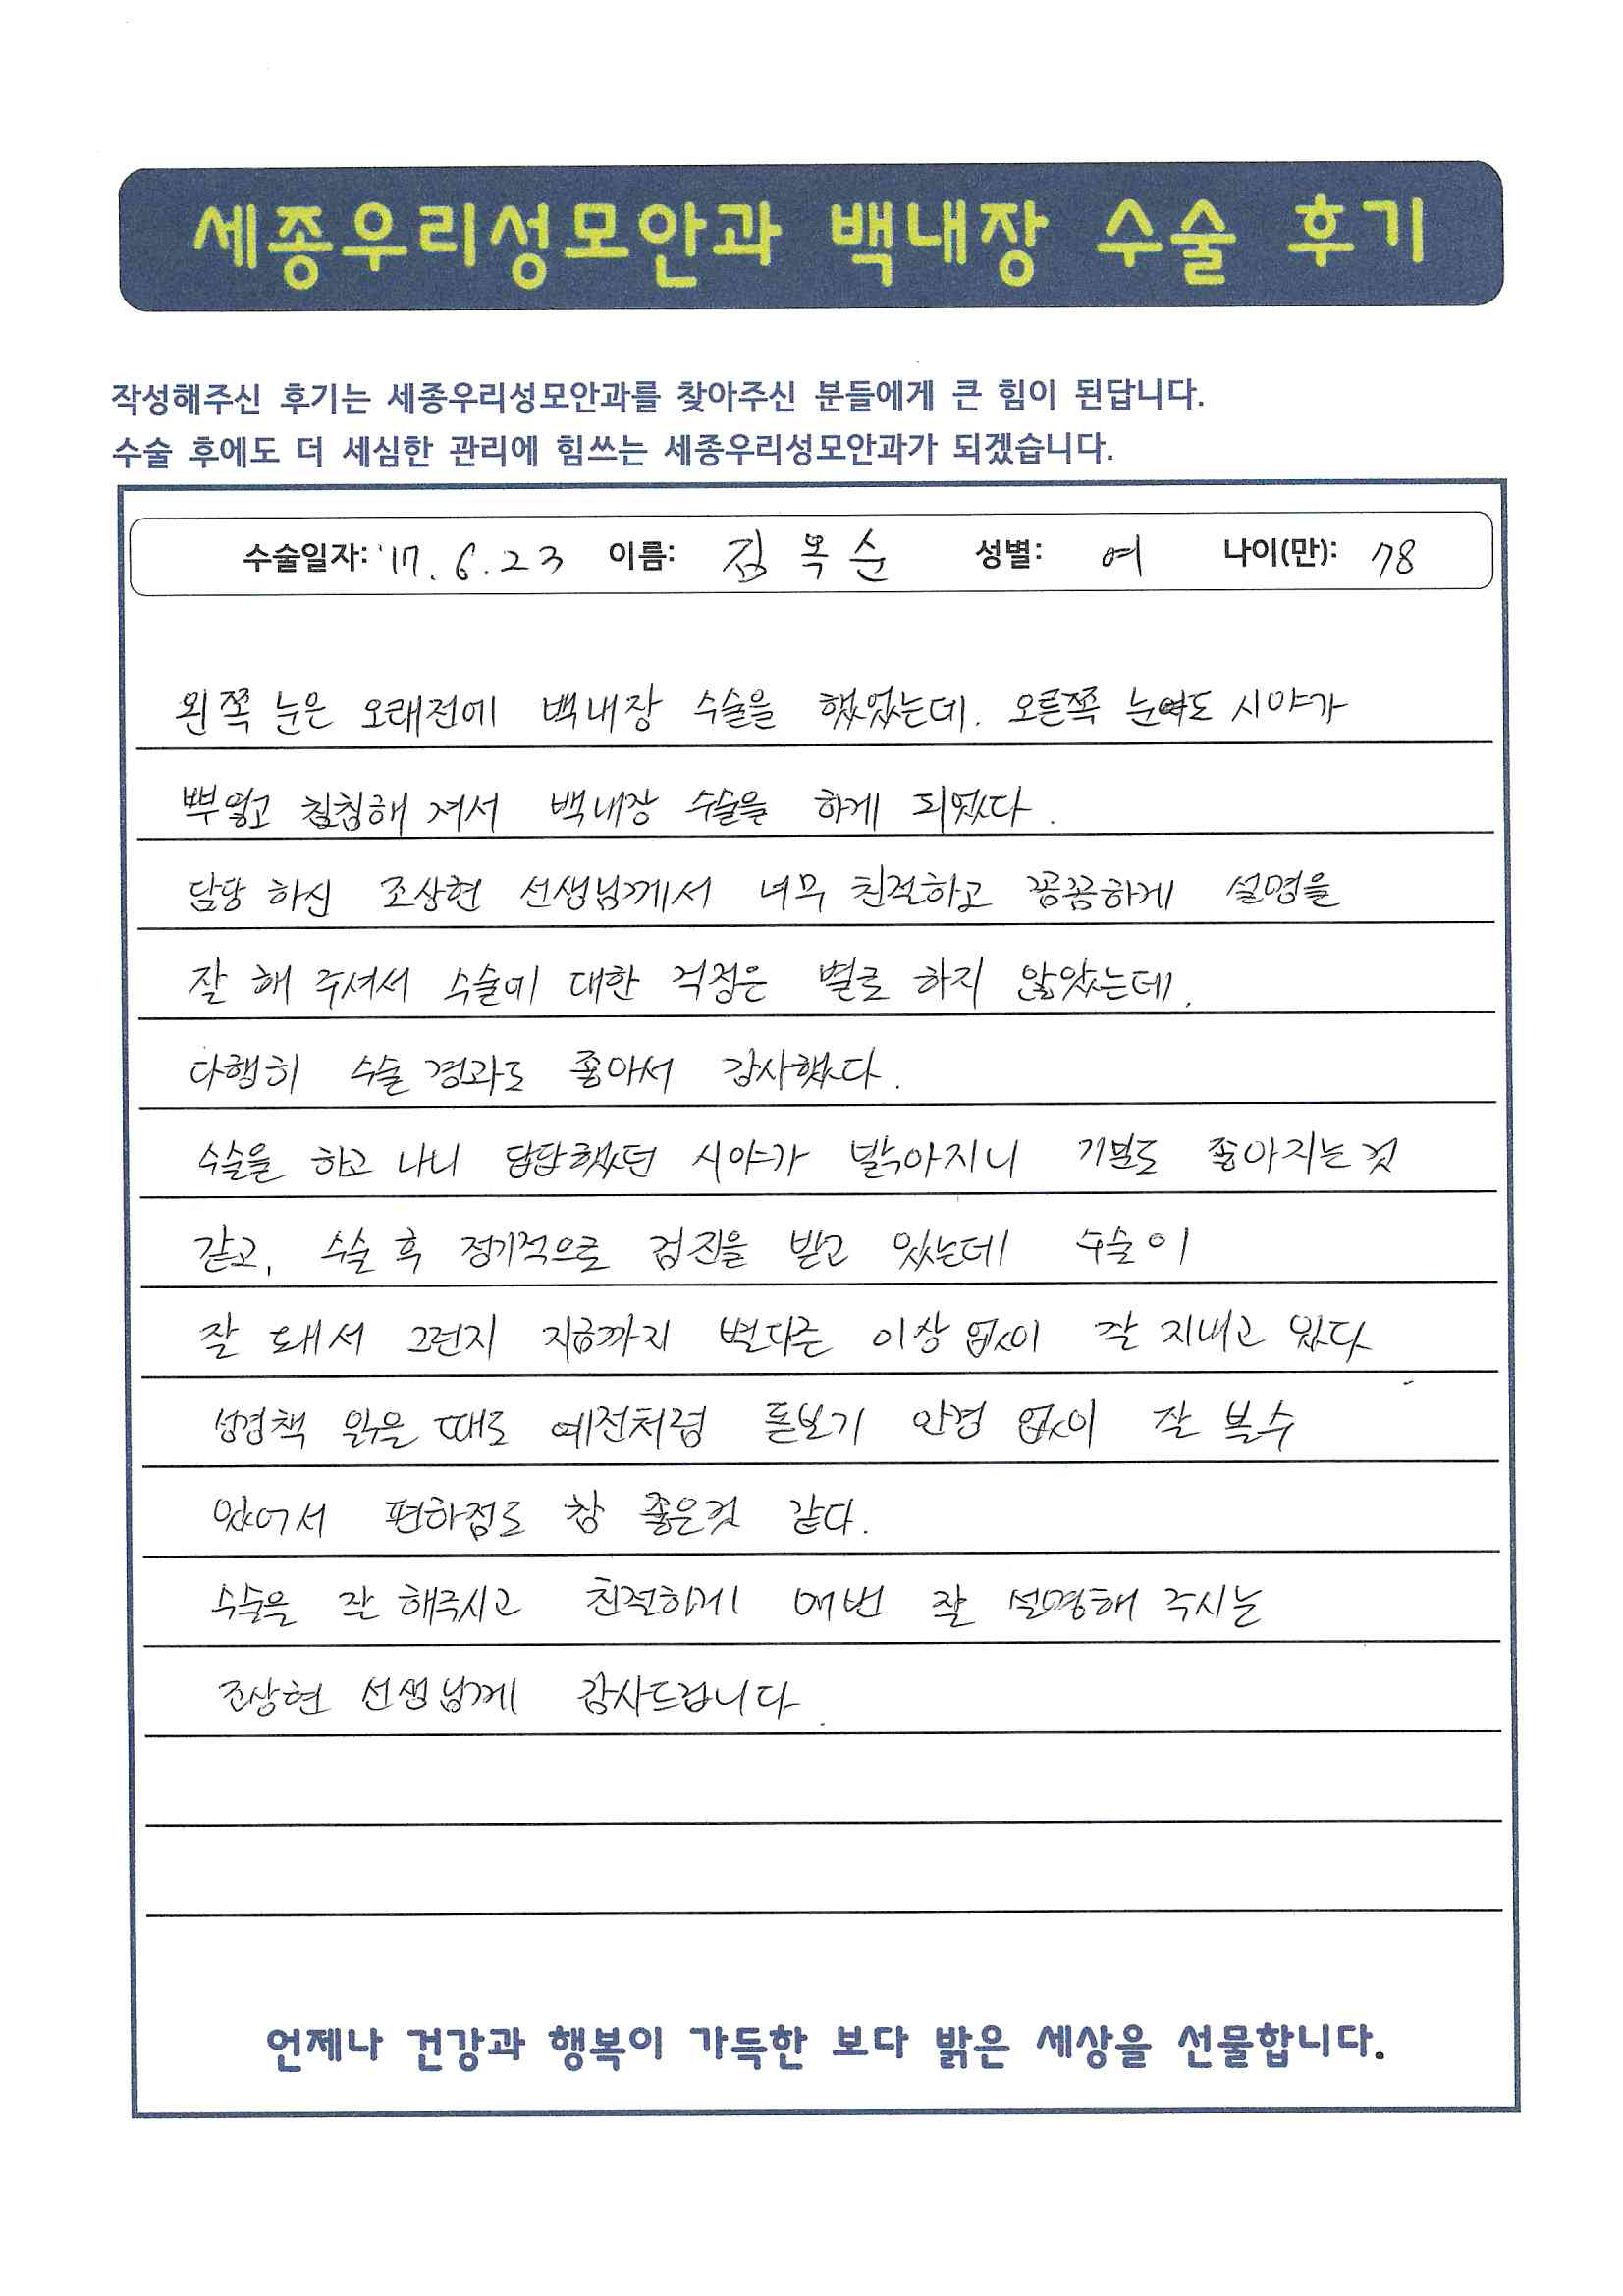 세종우리성모안과 백내장 수술 후기
작성해주신 후기는 세종우리성모안과를 찾아주신 분들에게 큰 힘이 된답니다.
수술 후에도 더 세심한 관리에 힘쓰는 세종우리성모안과가 되겠습니다.
수술일자: '17. 6. 23 이름: 김옥순 성별: 여 나이(만): 78
왼쪽 눈은 오래전에 백내장 수술을 했었는데. 오른쪽 시야가
뿌옇고 침침해 져서 백내장 수술을 하게 되었다.
담당 하신 조상현 선생님께서 너무 친절하고 꼼꼼하게 설명을
잘 해 주셔서 수술에 대한 걱정은 별로 하지 않았는데.
다행히 수술 경과도 좋아서 감사했다.
수술을 하고 나니 답답했던 시야가 밝아지니 기분도 좋아지는 것
같고, 수술 후 정기적으로 검진을 받고 있는데 수술이
잘 돼서 그런지 지금까지 별다른 이상 없이 잘 지내고 있다
성경책 읽을 때도 예전처럼 돋보기 안경 없이 잘 볼수
있어서 편하점도 참 좋은것 같다.
수술을 잘 해주시고 친절하게 매번 잘 설명해 주시는
조상현 선생님께 감사드립니다.
언제나 건강과 행복이 가득한 보다 밝은 세상을 선물합니다.